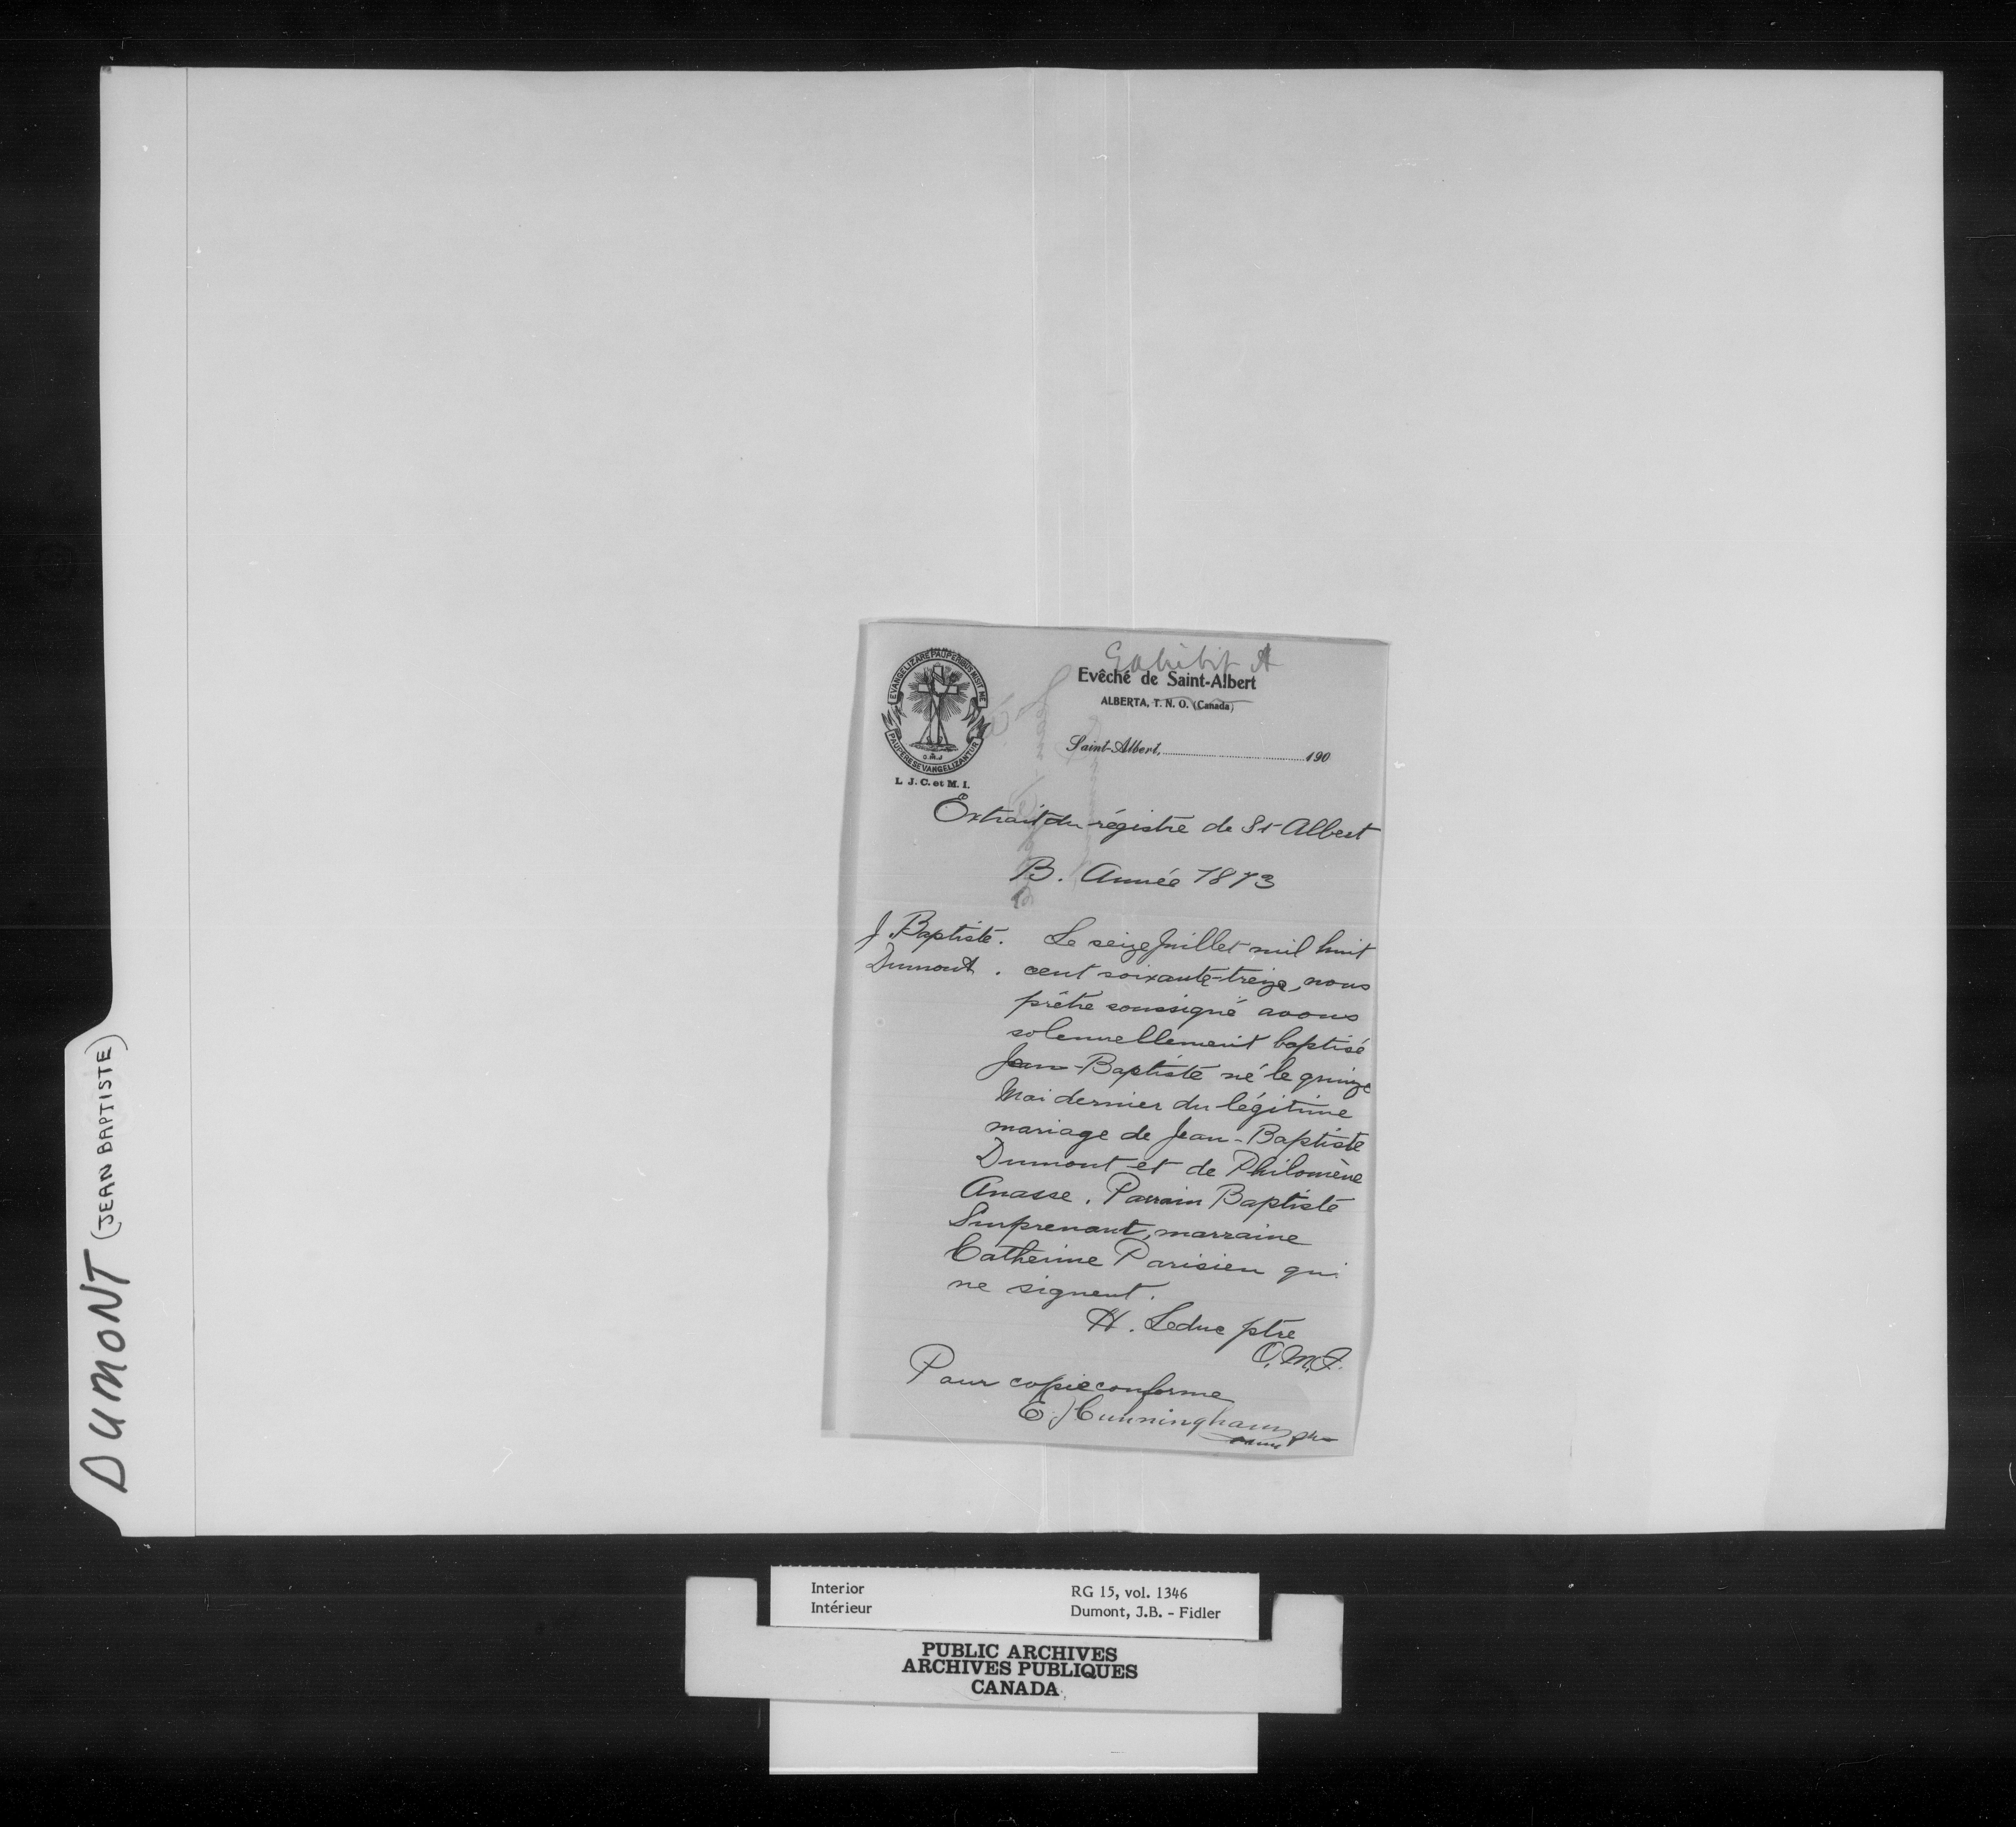 DUMONT (JEAN BAPTISTE)
Exhibit A
EVANGELIZARE PAUPERIBUS MISIT ME
PAUPERES EVANGELIZANTUR
O.M.I
L. J. C. et M. I.
Evêché de Saint-Albert
ALBERTA, T. N. O. (Canada)
Saint-Albert, 190
Extrait du régistre de St Albert
B. Année 1873
J. Baptiste. Le seize Juillet mil huit
Dumont. cent soixante-treize, nous
prêtre soussigné avons
solennellement baptisé
Jean-Baptiste né le quinze
Mai dernier du légitime
mariage de Jean-Baptiste
Dumont et de Philomène
Anasse. Parrain Baptiste
Surprenant, marraine
Catherine Parisien qui
ne signent.
H. Leduc ptre
O.M.I.
Pour copie conforme
E. Cunningham ptre
Interior
Intérieur
RG 15, vol. 1346
Dumont, J.B. - Fidler
PUBLIC ARCHIVES
ARCHIVES PUBLIQUES
CANADA